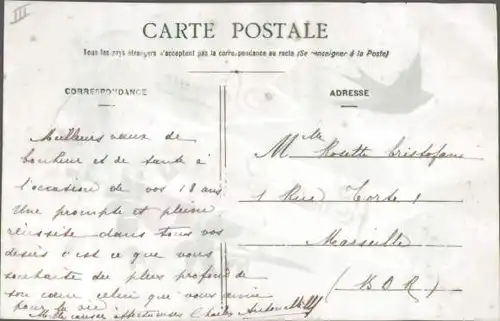 III
CARTE POSTALE
Tous les pays étrangers n'acceptent pas la correspondance au recto (Se renseigner à la Poste)
CORRESPONDANCE
ADRESSE
Meilleurs vœux de
bonheur et de santé à
l'occasion de vos 18 ans
Une prompte et pleine
réussite dans tous vos
désirs c'est ce que vous
souhaite du plus profond de
son cœur celui que vous aimé
pour la vie
Mille caresses affectueuses Charles
Mlle Rosette Cristofani
1 Rue Torte 1
Marseille
(B. D. R)